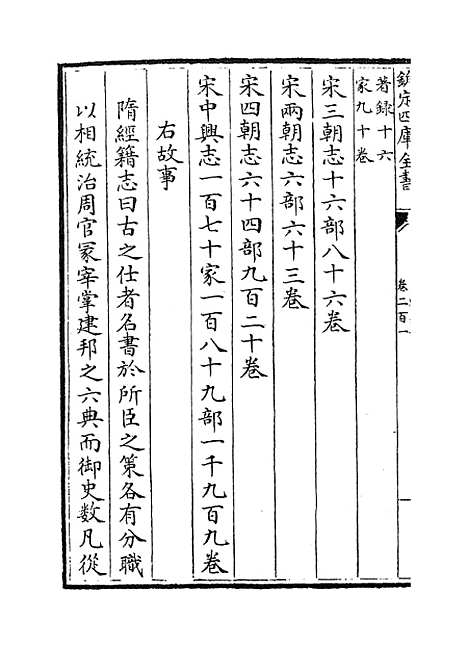 欽定四庫全書
卷二百一
著錄十六
家九十卷
宋三朝志十六部八十六卷
宋兩朝志六部六十三卷
宋四朝志六十四部九百二十卷
宋中興志一百七十家一百八十九部一千九百九卷
右故事
隋經籍志曰古之仕者名書於所臣之策各有分職
以相統治周官冢宰掌建邦之六典而御史數凡從